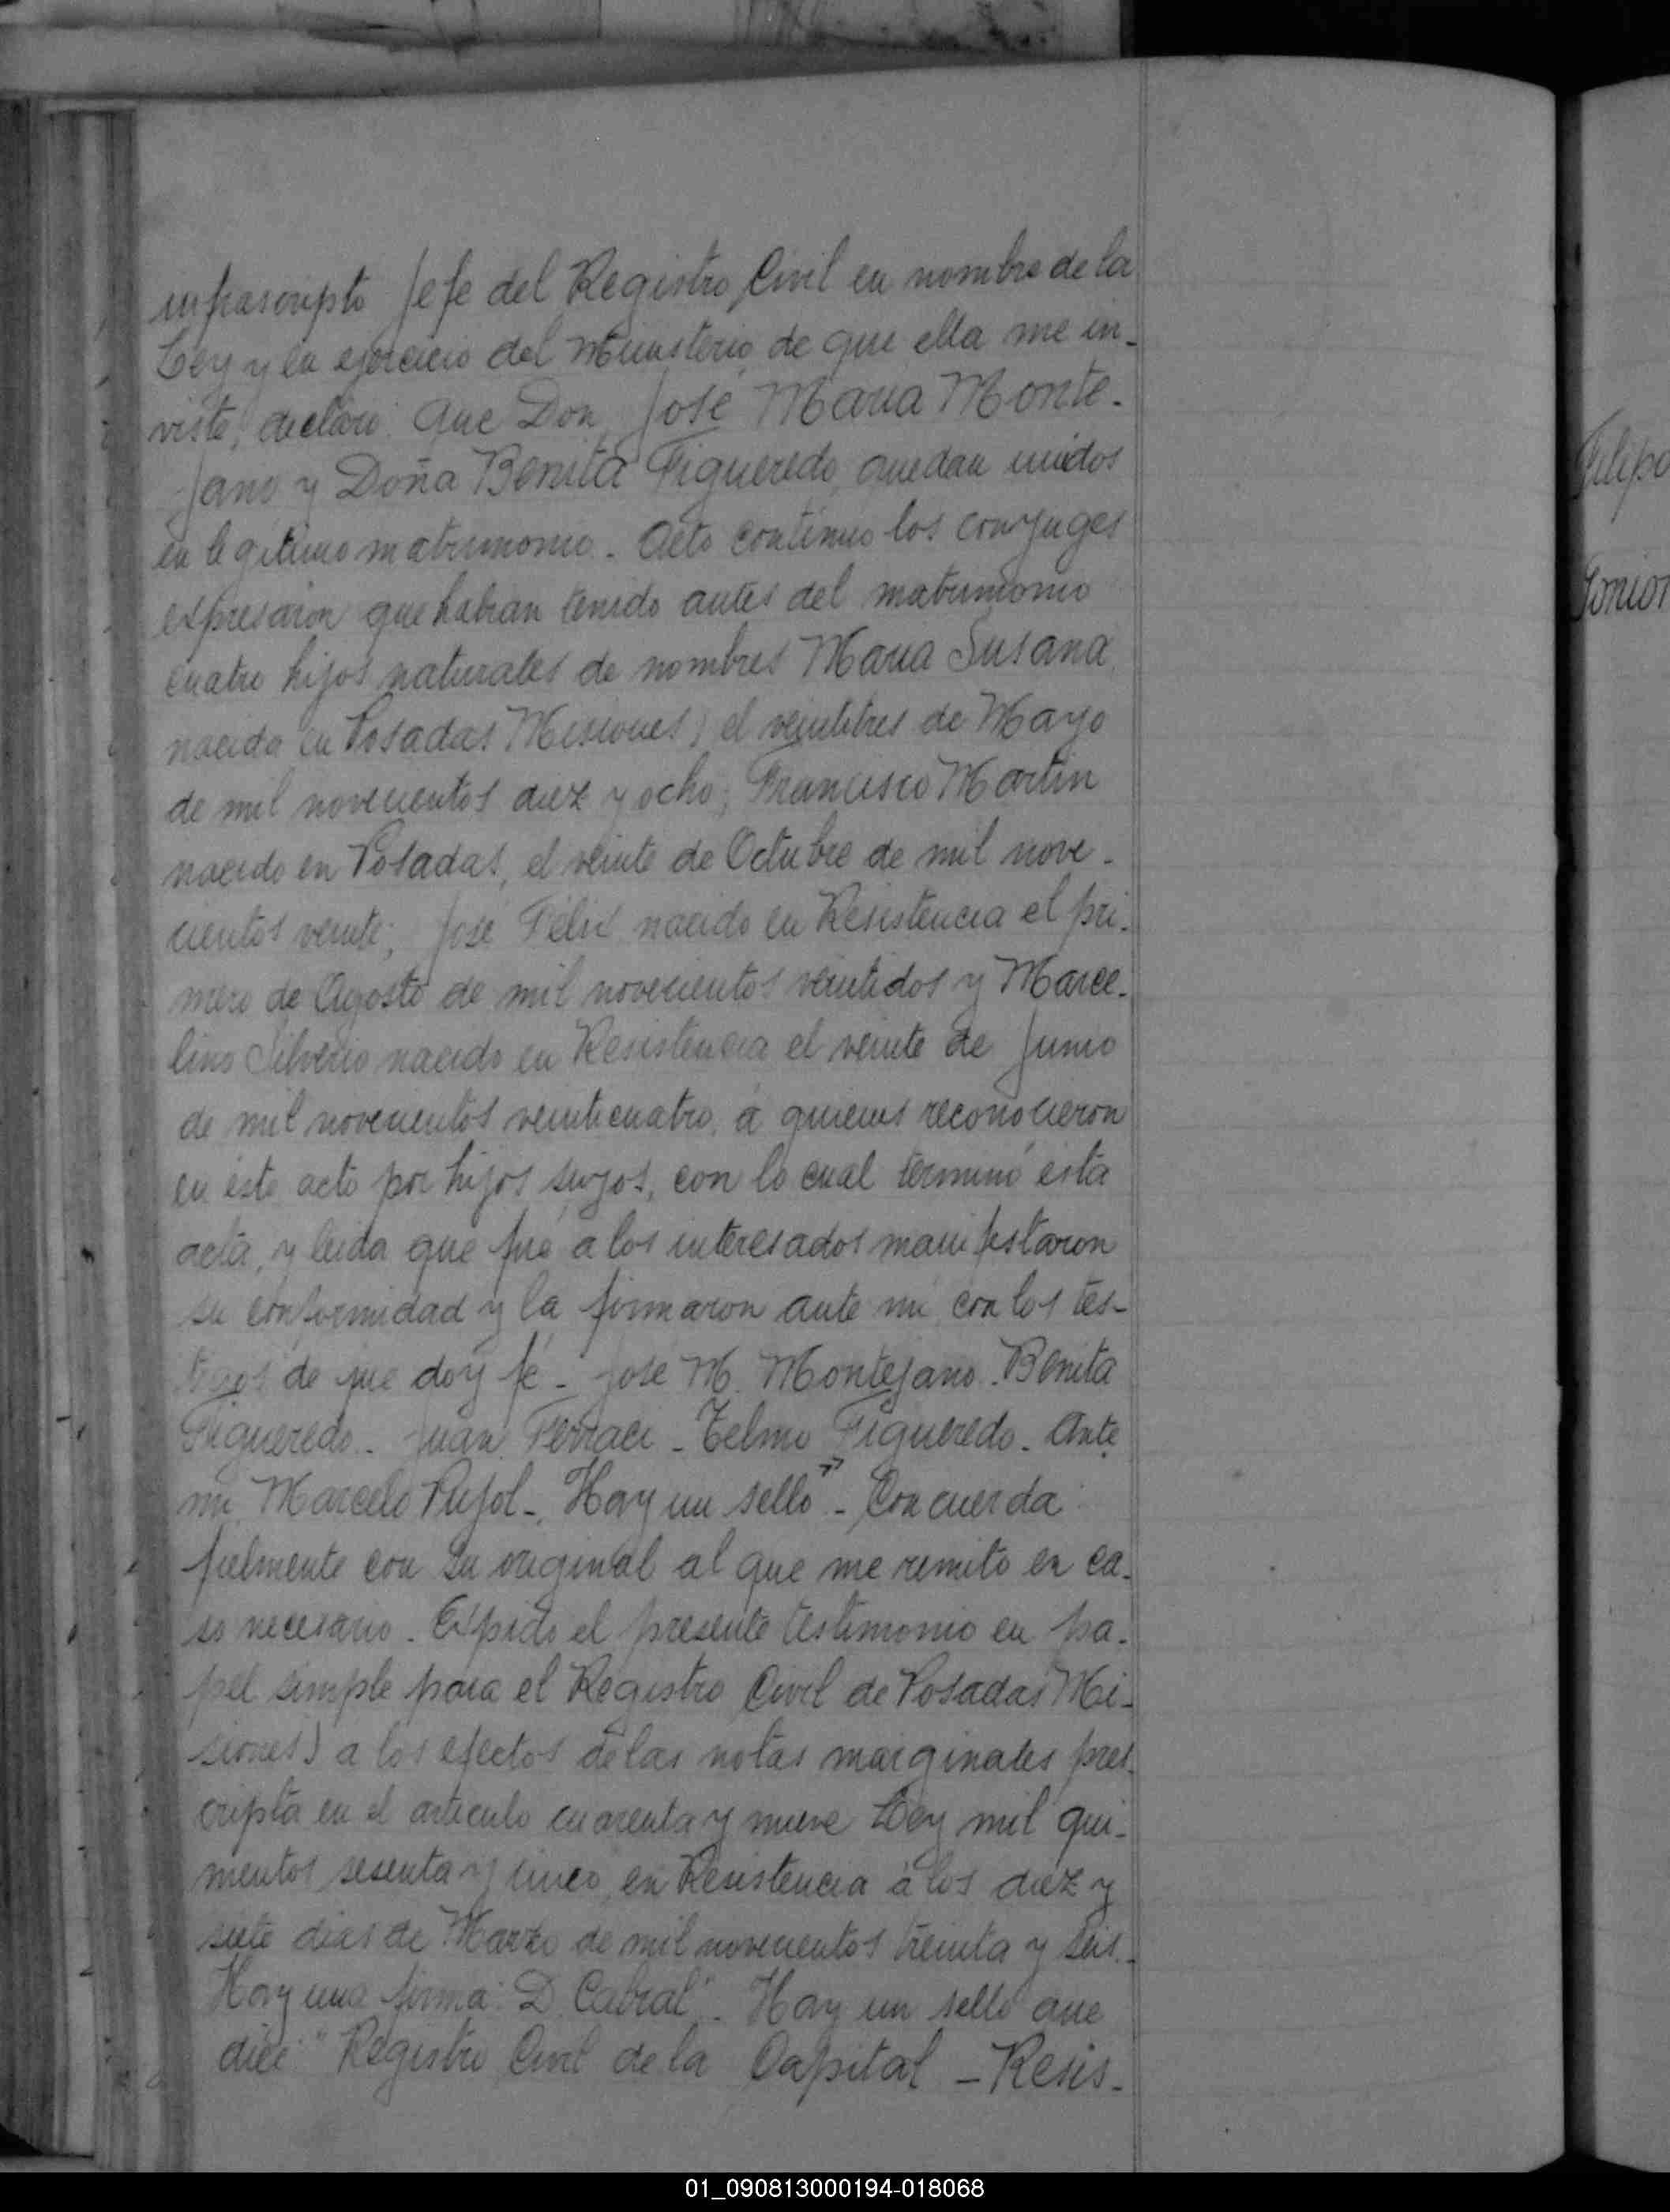 infrascripto Jefe del Registro Civil en nombre de la
Ley y en ejercicio del Ministerio de que ella me in-
viste, declaro: Que Don José Maria Monte-
jano y Doña Benita Figueredo, quedan unidos
en legitimo matrimonio - Acto continuo los conyuges
espresaron que habian tenido antes del matrimonio
cuatro hijos naturales de nombres Maria Susana
nacida en Posadas Misiones) el veintitres de Mayo
de mil novecientos diez y ocho; Francisco Martin
nacido en Posadas, el veinte de Octubre de mil nove-
cientos veinte; José Félix nacido en Resistencia el pri-
mero de Agosto de mil novecientos veintidos y Marce-
lino Silverio nacido en Resistencia el veinte de Junio
de mil novecientos veinticuatro, á quienes reconocieron
en este acto por hijos suyos, con lo cual terminó esta
acta, y leida que fué a los interesados manifestaron
su conformidad y la firmaron ante mi con los tes-
tigos de que doy fé - José M. Montejano - Benita
Figueredo - Juan Ferraci - Telmo Figueredo - Ante
mi Marcelo Pujol - Hay un sello" - Concuerda
fielmente con su original al que me remito en ca-
so necesario - Espido el presente testimonio en pa-
pel simple para el Registro Civil de Posadas Mi-
siones) a los efectos de las notas marginales pres-
cripta en el articulo cuarenta y nueve Ley mil qui-
nientos sesenta y cinco, en Resistencia á los diez y
siete dias de Marzo de mil novecientos treinta y seis -
Hay una firma: D. Cabral" - Hay un sello que
dice "Registro Civil de la Capital - Resis-
Filipo
01_090813000194-018068